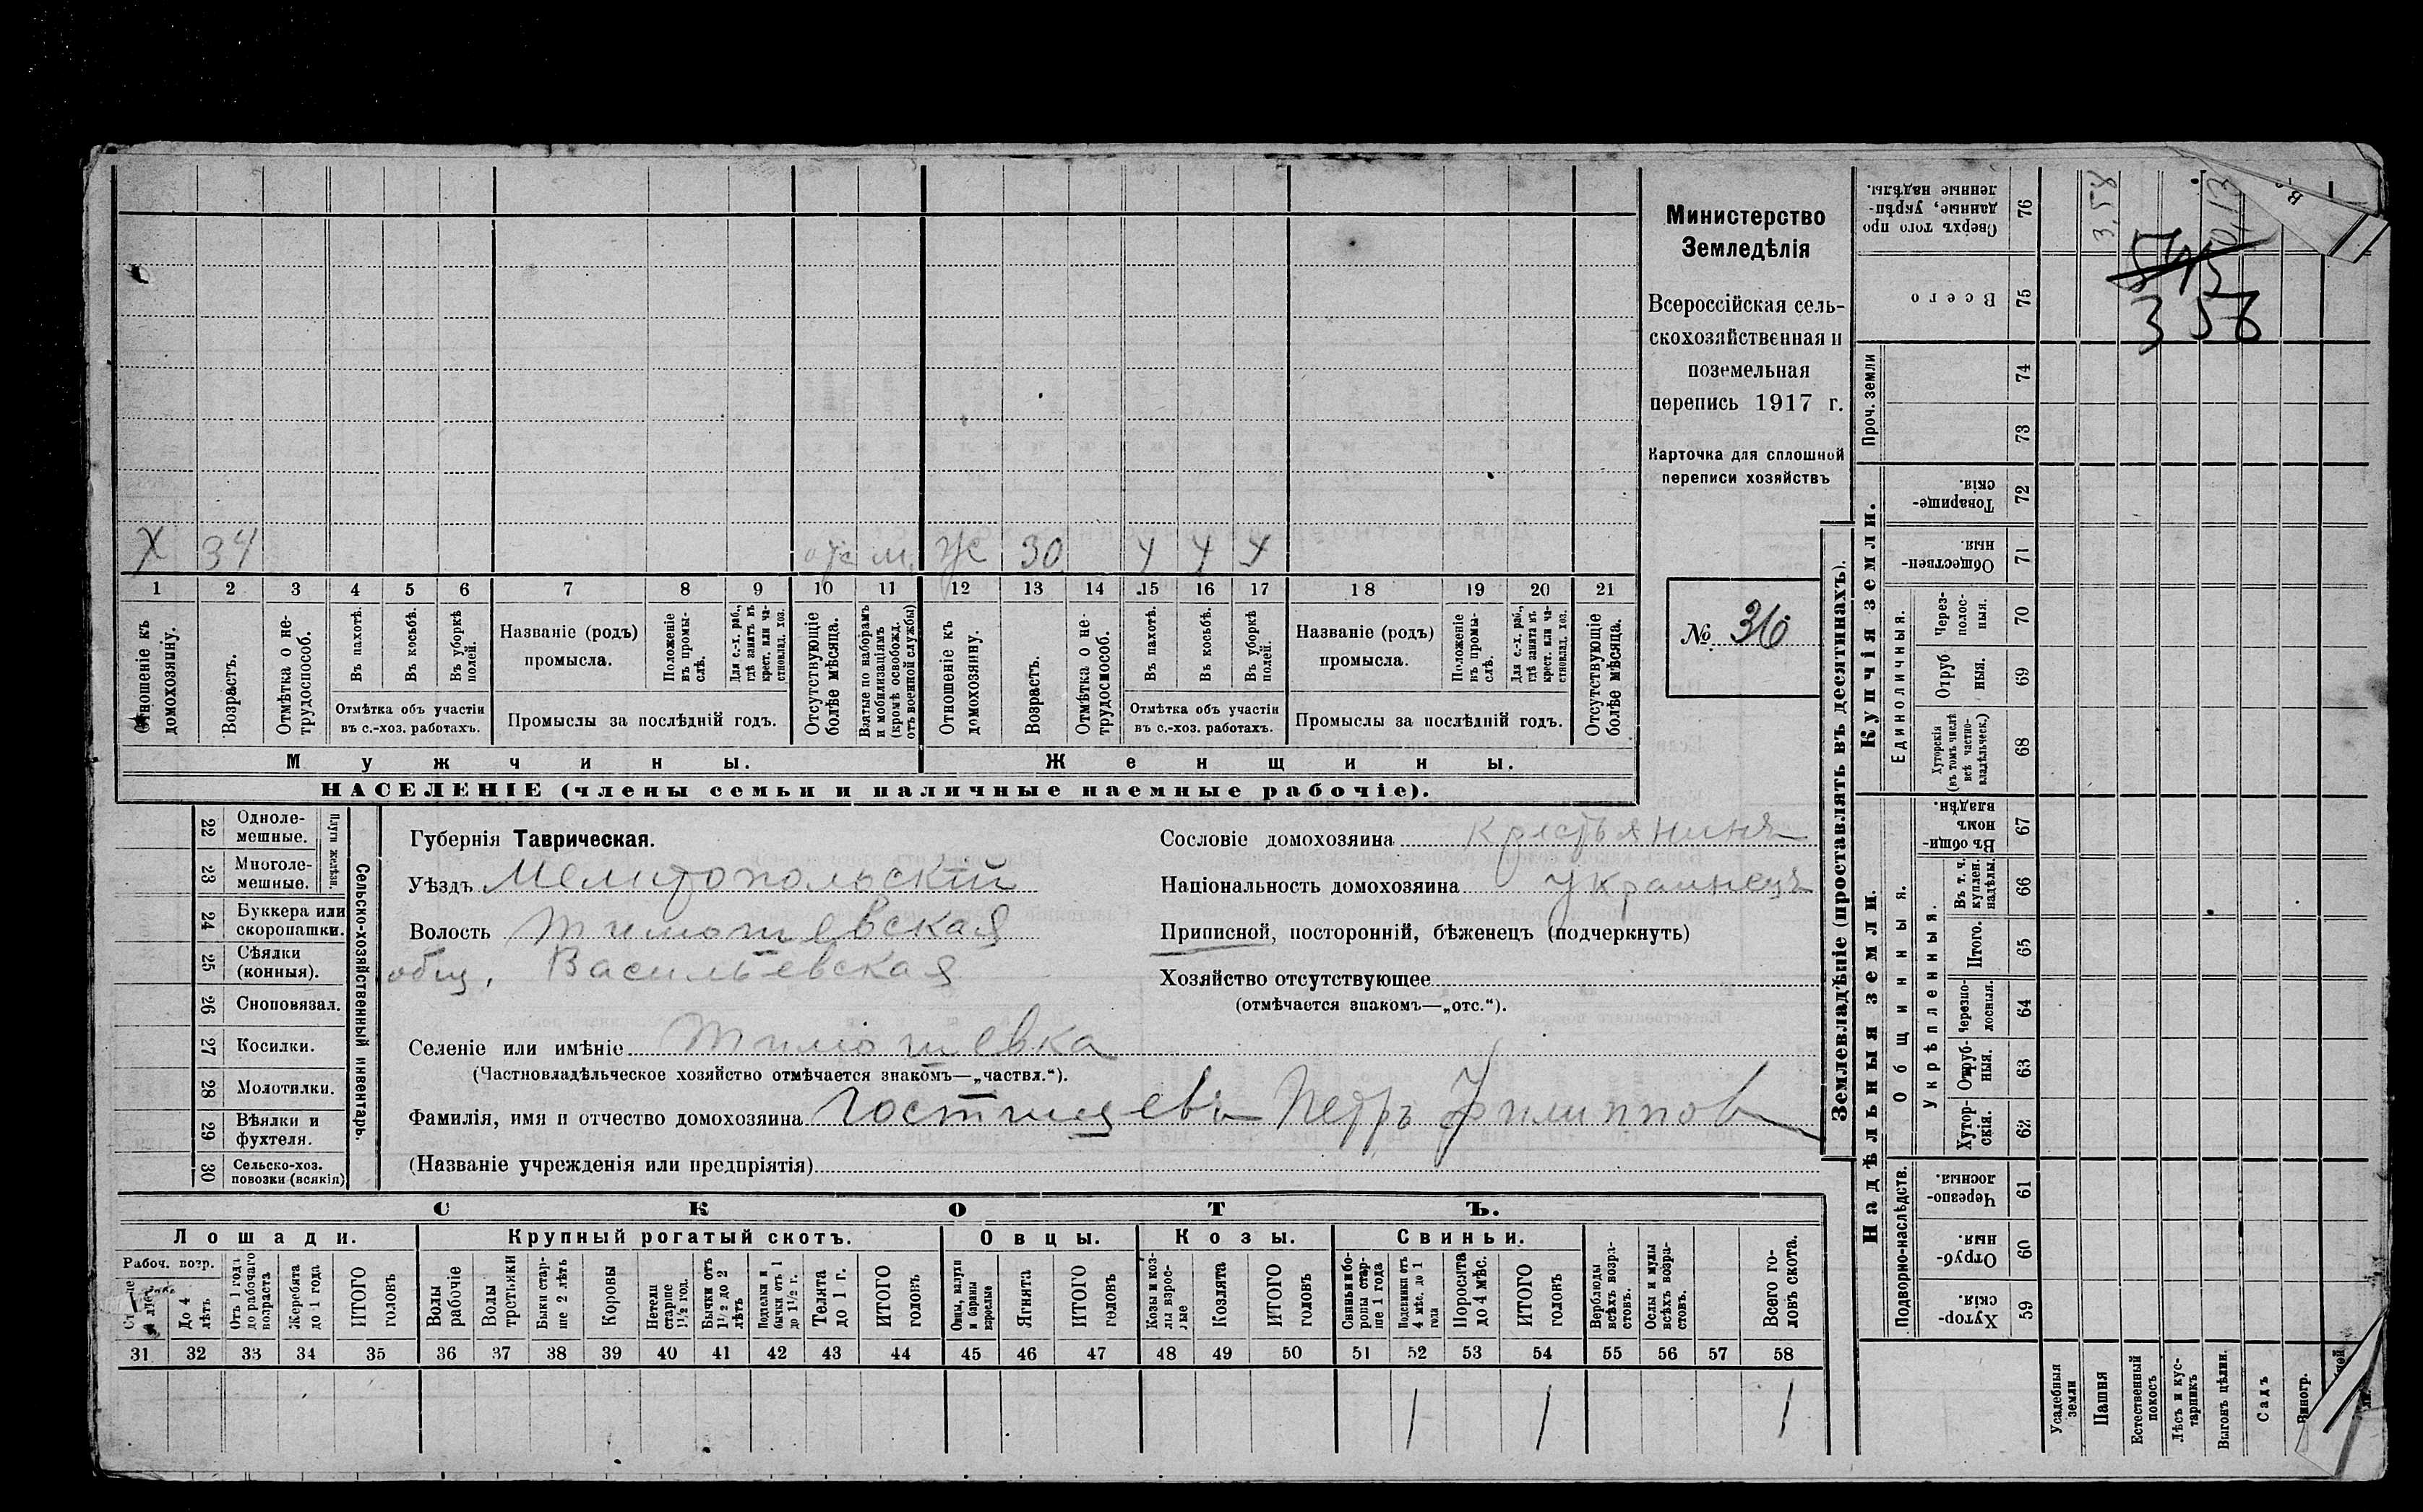 Х 34 отс м. Ж 30 4 4 4
1 2 3 4 5 6 7 8 9 10 11 12 13 14 15 16 17 18 19 20 21
Отношеніе къ домохозяину.
Возрастъ.
Отмѣтка о нетрудоспособ.
Въ пахотѣ.
Въ косьбѣ.
Въ уборкѣ полей.
Отмѣтка объ участіи
въ с.-хоз. работахъ.
Названіе (родъ)
промысла.
Положеніе въ промыслѣ.
Для с.-х. раб., гдѣ занятъ въ крест. или частновлад. хоз.
Промыслы за послѣдній годъ.
Отсутствующіе болѣе мѣсяца.
Взятые по наборамъ и мобилизаціямъ (кромѣ освобожд. отъ военной службы).
Отношеніе къ домохозяину.
Возрастъ.
Отмѣтка о нетрудоспособ.
Въ пахотѣ.
Въ косьбѣ.
Въ уборкѣ полей.
Отмѣтка объ участіи
въ с.-хоз. работахъ.
Названіе (родъ)
промысла.
Положеніе въ промыслѣ.
Для с.-х. раб., гдѣ занята въ крест. или частновлад. хоз.
Промыслы за послѣдній годъ.
Отсутствующіе болѣе мѣсяца.
Мужчины.
Женщины.
НАСЕЛЕНІЕ (члены семьи и наличные наемные рабочіе).
Министерство
Земледѣлія
Всероссійская сель-
скохозяйственная и
поземельная
перепись 1917 г.
Карточка для сплошной
переписи хозяйствъ
№ 36
22 Одноле-
мешные.
23 Многоле-
мешные.
Плуги желѣзн.
24 Буккера или
скоропашки.
25 Сѣялки
(конныя).
26 Сноповязал.
27 Косилки.
28 Молотилки.
29 Вѣялки и
фухтеля.
30 Сельско-хоз.
повозки (всякія)
Сельско-хозяйственный инвентарь.
Губернія Таврическая.
Уѣздъ Мелитопольскій
Волость Тимошевская
общ. Васильевская
Селеніе или имѣніе Тимошевка
(Частновладѣльческое хозяйство отмѣчается знакомъ—„частвл.“).
Фамилія, имя и отчество домохозяина Гостищевъ Петръ Филиппов
(Названіе учрежденія или предпріятія)
Сословіе домохозяина крестьянинъ
Національность домохозяина Украинецъ
Приписной, посторонній, бѣженецъ (подчеркнуть)
Хозяйство отсутствующее
(отмѣчается знакомъ—„отс.“).
СКОТЪ.
Лошади.
Крупный рогатый скотъ.
Овцы.
Козы.
Свиньи.
Рабоч. возр.
До 4 лѣтъ
Отъ 1 года до рабочаго возраста
Жеребята до 1 года
ИТОГО головъ
Волы рабочіе
Волы третьяки
Быки старше 2 лѣтъ
Коровы
Нетели старше 1½ год.
Бычки отъ 1½ до 2 лѣтъ
Подтелки и бычки отъ 1 до 1½ г.
Телята до 1 г.
ИТОГО головъ
Овцы, валухи и бараны взрослые
Ягнята
ИТОГО головъ
Козы и козлы взрослые
Козлята
ИТОГО головъ
Свиньи и боровы старше 1 года
Подсвинки отъ 4 мѣс. до 1 года
Поросята до 4 мѣс.
ИТОГО головъ
Верблюды всѣхъ возрастовъ.
Ослы и мулы всѣхъ возрастовъ.
Всего головъ скота.
31 32 33 34 35 36 37 38 39 40 41 42 43 44 45 46 47 48 49 50 51 52 53 54 55 56 57 58
1 1 1
Землевладѣніе (проставлять въ десятинахъ).
Купчія земли.
Надѣльныя земли.
Сверхъ того проданные, укрѣпленные надѣлы.
76
3,58
0,13
Всего
75
545
358
Проч. земли
74
73
Товарищескія.
72
Общественныя.
71
Единоличныя.
Черезполосныя.
70
Отрубныя.
69
Хуторскія (въ томъ числѣ всѣ частновладѣльческ.)
68
Въ общинномъ владѣн.
67
Общинныя.
Укрѣпленныя.
Въ т. ч. куплен. надѣлы.
66
Итого.
65
Черезполосныя.
64
Отрубныя.
63
Хуторскія.
62
Подворно-наслѣдств.
Черезполосныя.
61
Отрубныя.
60
Хуторскія.
59
Усадебныя земли
Пашня
Естественный покосъ
Лѣсъ и кустарникъ
Выгонъ цѣлин.
Садъ
Виногр.